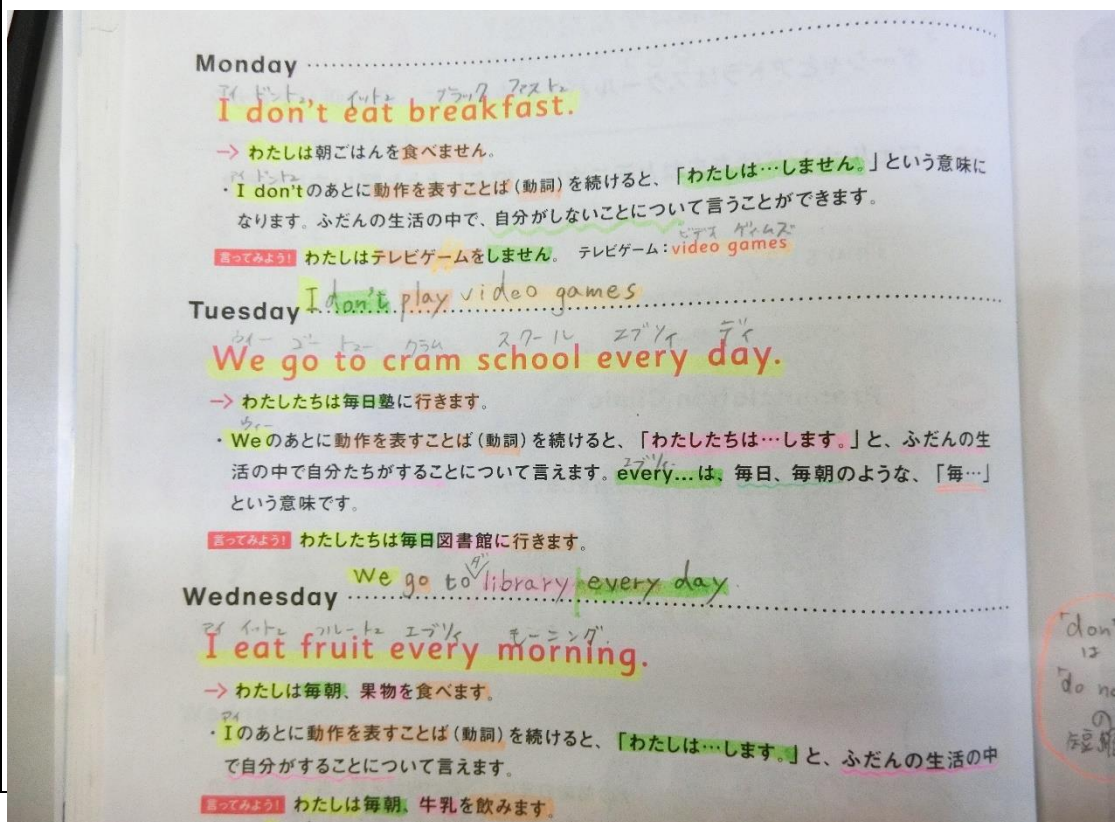 Monday
アイ ドント イット ブラック ファスト
I don't eat breakfast.
→ わたしは朝ごはんを食べません。
アイ ドント
・I don'tのあとに動作を表すことば(動詞)を続けると、「わたしは…しません。」という意味に
なります。ふだんの生活の中で、自分がしないことについて言うことができます。
ビデオ ゲイムズ
言ってみよう! わたしはテレビゲームをしません。 テレビゲーム:video games
I don't play video games
Tuesday
ウィー ゴー トゥー クラム スクール エブリィ デイ
We go to cram school every day.
→ わたしたちは毎日塾に行きます。
ウィー
・Weのあとに動作を表すことば(動詞)を続けると、「わたしたちは…します。」と、ふだんの生
エブリィ
活の中で自分たちがすることについて言えます。every...は、毎日、毎朝のような、「毎…」
という意味です。
言ってみよう! わたしたちは毎日図書館に行きます。
ダ
We go to library every day
Wednesday
アイ イット フルート エブリィ モーニング
I eat fruit every morning.
→ わたしは毎朝、果物を食べます。
アイ
・Iのあとに動作を表すことば(動詞)を続けると、「わたしは…します。」と、ふだんの生活の中
で自分がすることについて言えます。
言ってみよう! わたしは毎朝、牛乳を飲みます。
「don'
は
「do no
の